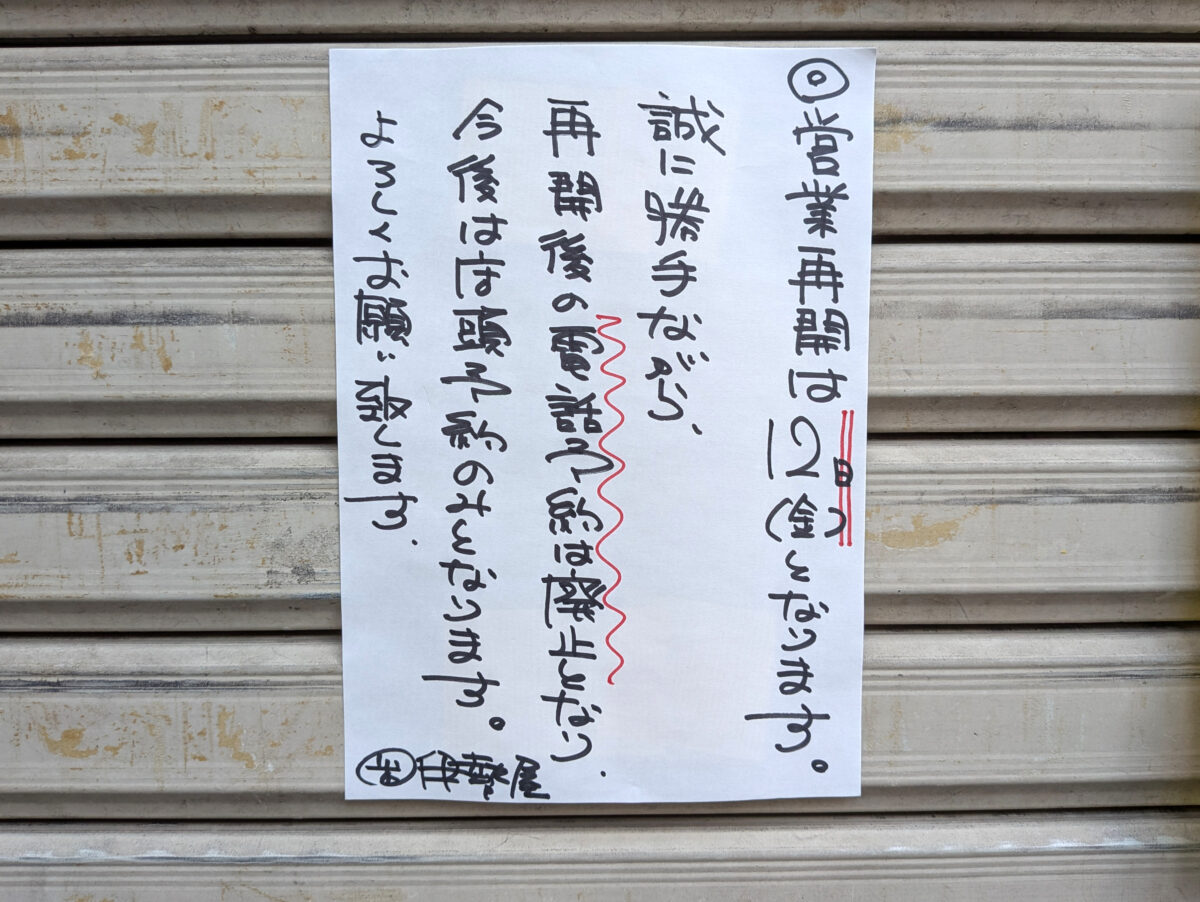 ◎営業再開は12日(金)となります。
誠に勝手ながら、
再開後の電話予約は廃止となり、
今後は店頭予約のみとなります。
よろしくお願い致します。
屋